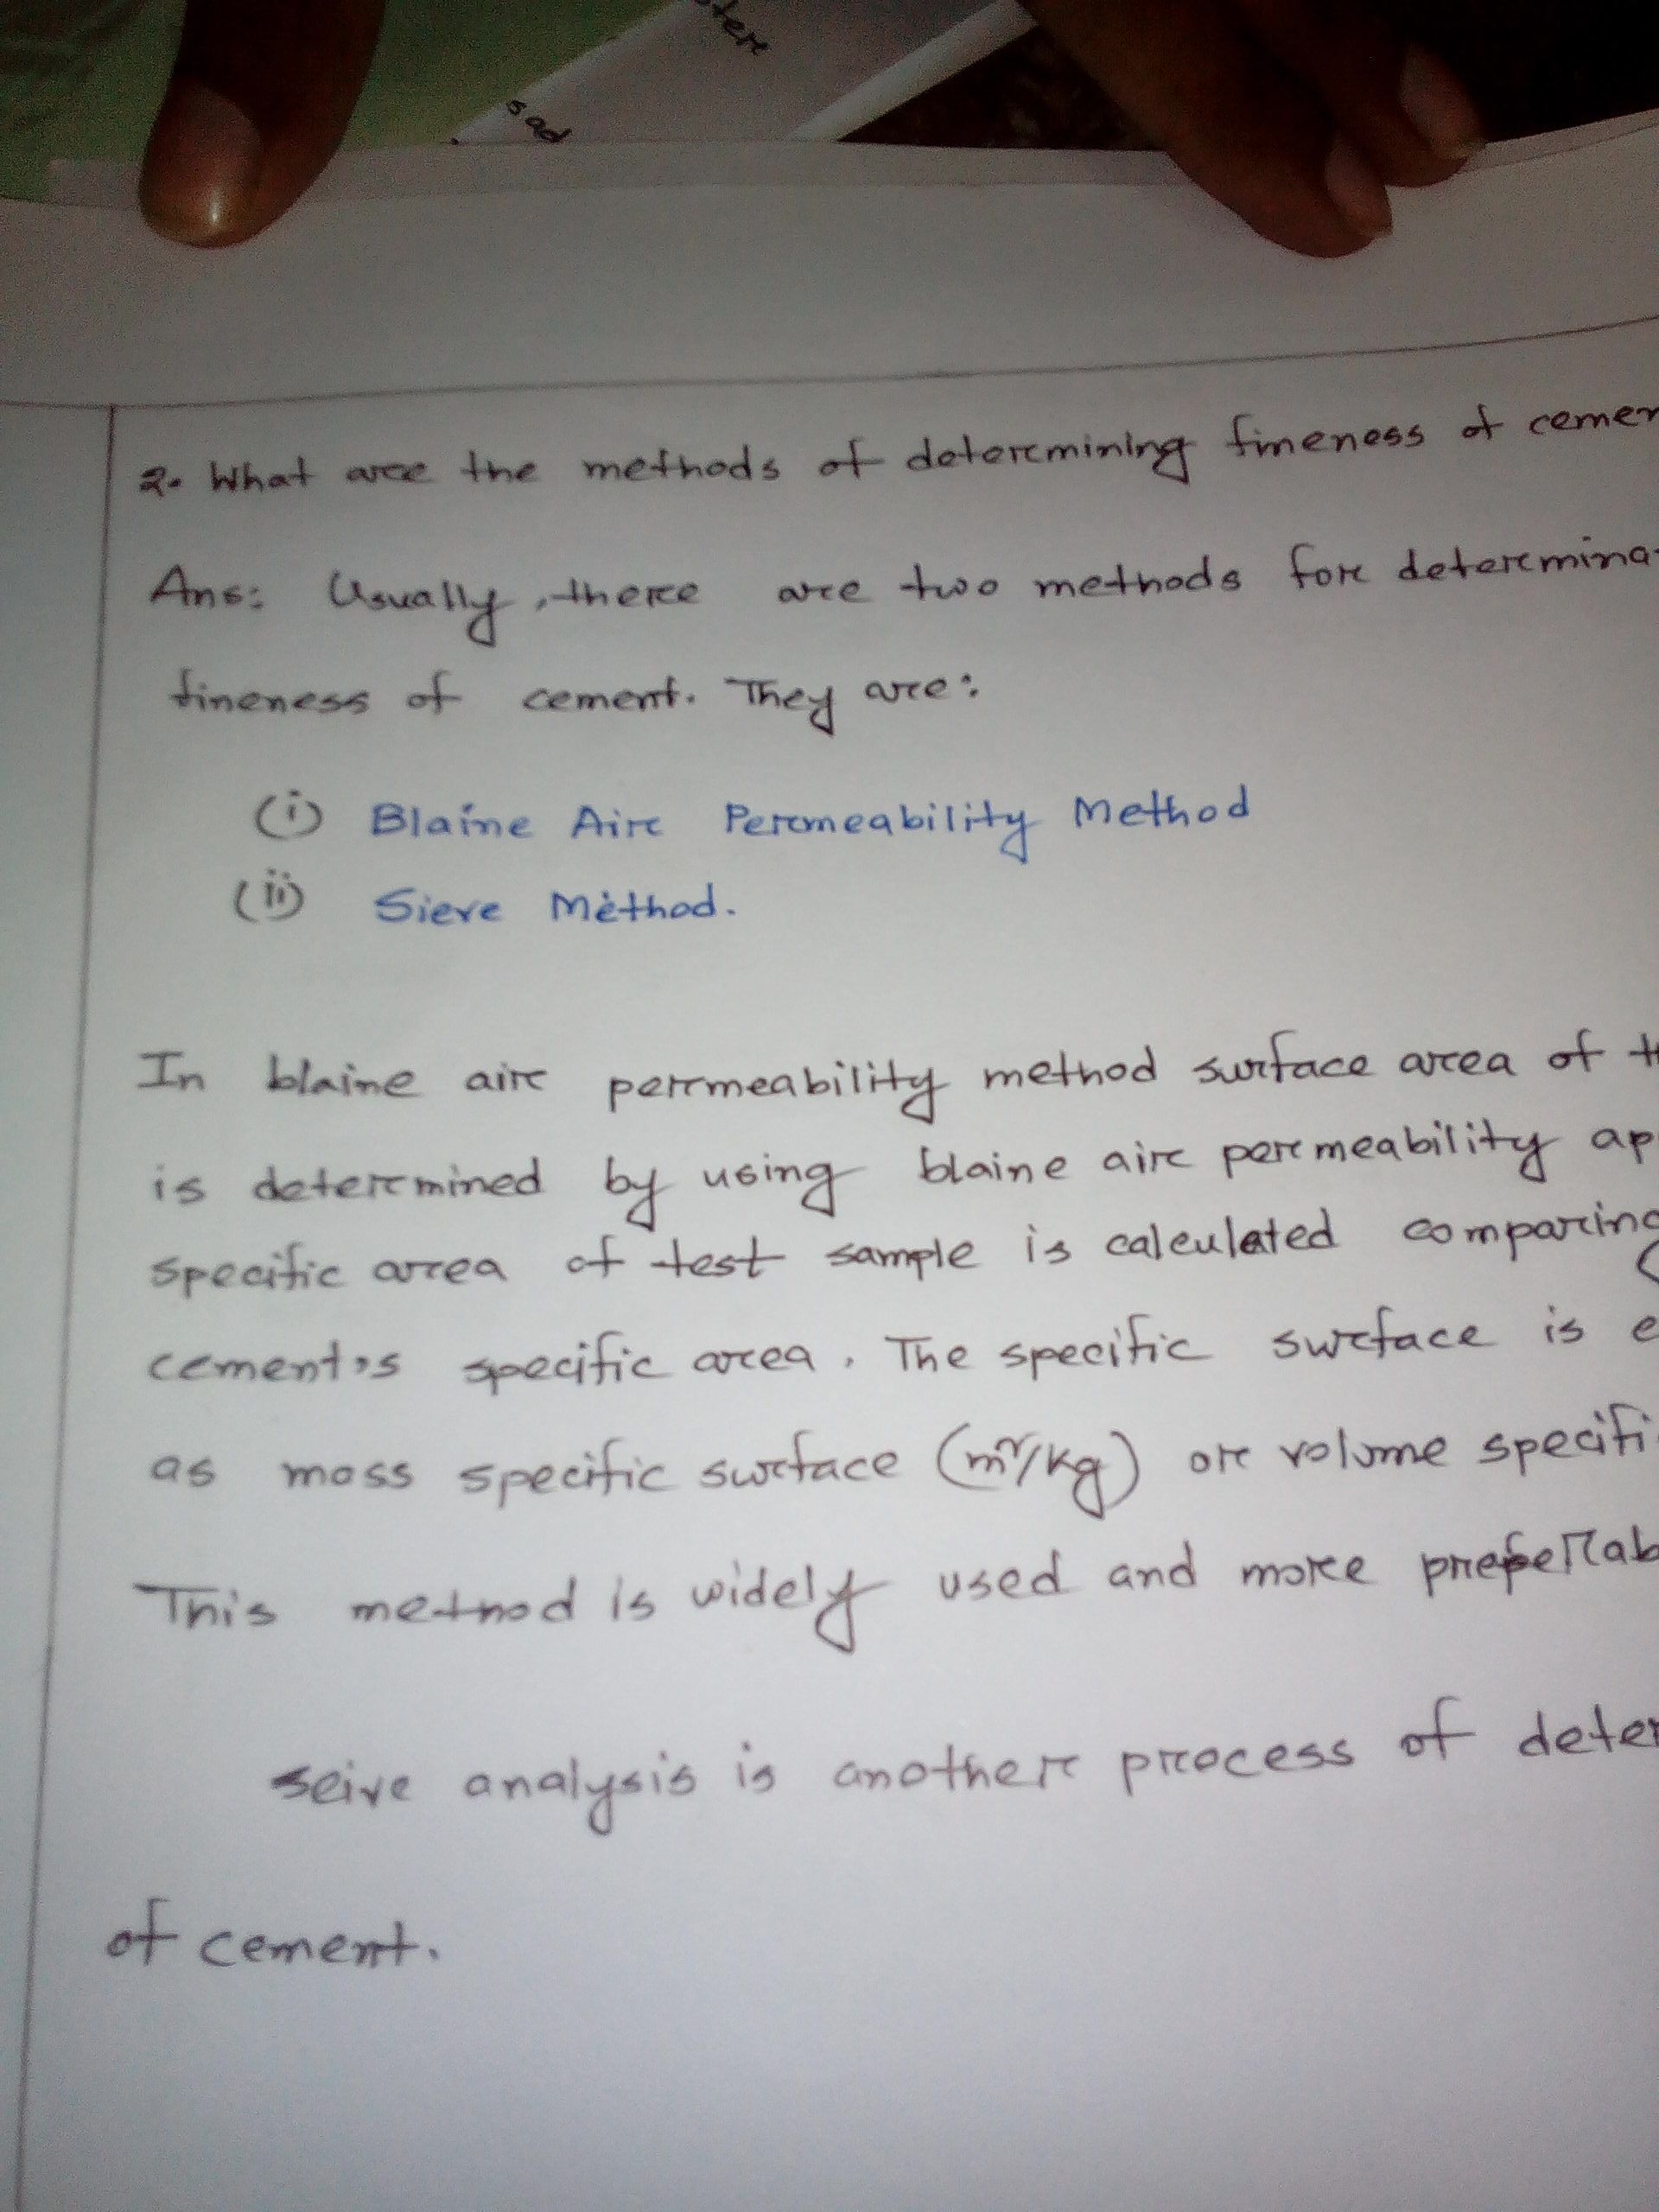 tere
sad
2. What are the methods of determining fineness of cemen
Ans: Usually, there are two methods for determina
fineness of cement. They are:
(i) Blaine Air Permeability Method
(ii) Sieve Method.
In blaine air permeability method surface area of th
is determined by using blaine air permeability ap
specific area of test sample is calculated comparing
cement's specific area. The specific surface is e
as mass specific surface (m²/kg) or volume specifi
This method is widely used and more preferab
seive analysis is another process of deter
of cement.